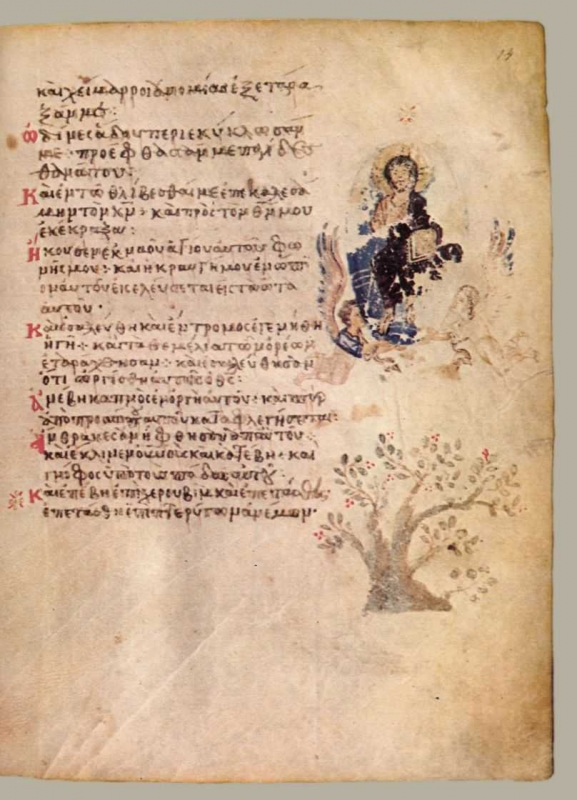 καὶ χείμαρροι ἀνομίας ἐξετάρα
ξάν με:
ὠδῖνες ᾅδου περιεκύκλωσάν
με· προέφθασάν με
θανάτου:
Καὶ ἐν τῷ θλίβεσθαί με ἐπεκαλεσά
μην τὸν κν· καὶ πρὸς τὸν θν μου
ἐκέκραξα:
ἤκουσεν ἐκ ναοῦ ἁγίου αὐτοῦ φω
νῆς μου· καὶ ἡ κραυγή μου ἐνώπι
ον αὐτοῦ εἰσελεύσεται εἰς τὰ ὦτα
αὐτοῦ·
Καὶ ἐσαλεύθη καὶ ἔντρομος ἐγενήθη
ἡ γῆ· καὶ τὰ θεμέλια τῶν ὀρέων
ἐταράχθησαν· καὶ ἐσαλεύθησαν
ὅτι ὠργίσθη αὐτοῖς ὁ θς:
ἀνέβη καπνὸς ἐν ὀργῇ αὐτοῦ· καὶ πῦρ
ἀπὸ προσώπου αὐτοῦ καταφλεγήσεται:
ἄνθρακες ἀνήφθησαν αὐτοῦ·
καὶ ἔκλινεν οὐνους καὶ κατέβη· καὶ
γνόφος ὑπὸ τοὺς πόδας αὐτοῦ:
Καὶ ἐπέβη ἐπὶ χερουβὶμ καὶ ἐπετάσθη
ἐπετάσθη ἐπὶ πτερύγων ἀνέμων·